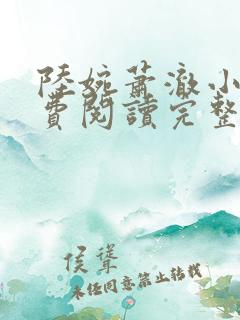 陸婉蕭澈小
費閱讀完整
侯聳
未经同意禁止转载